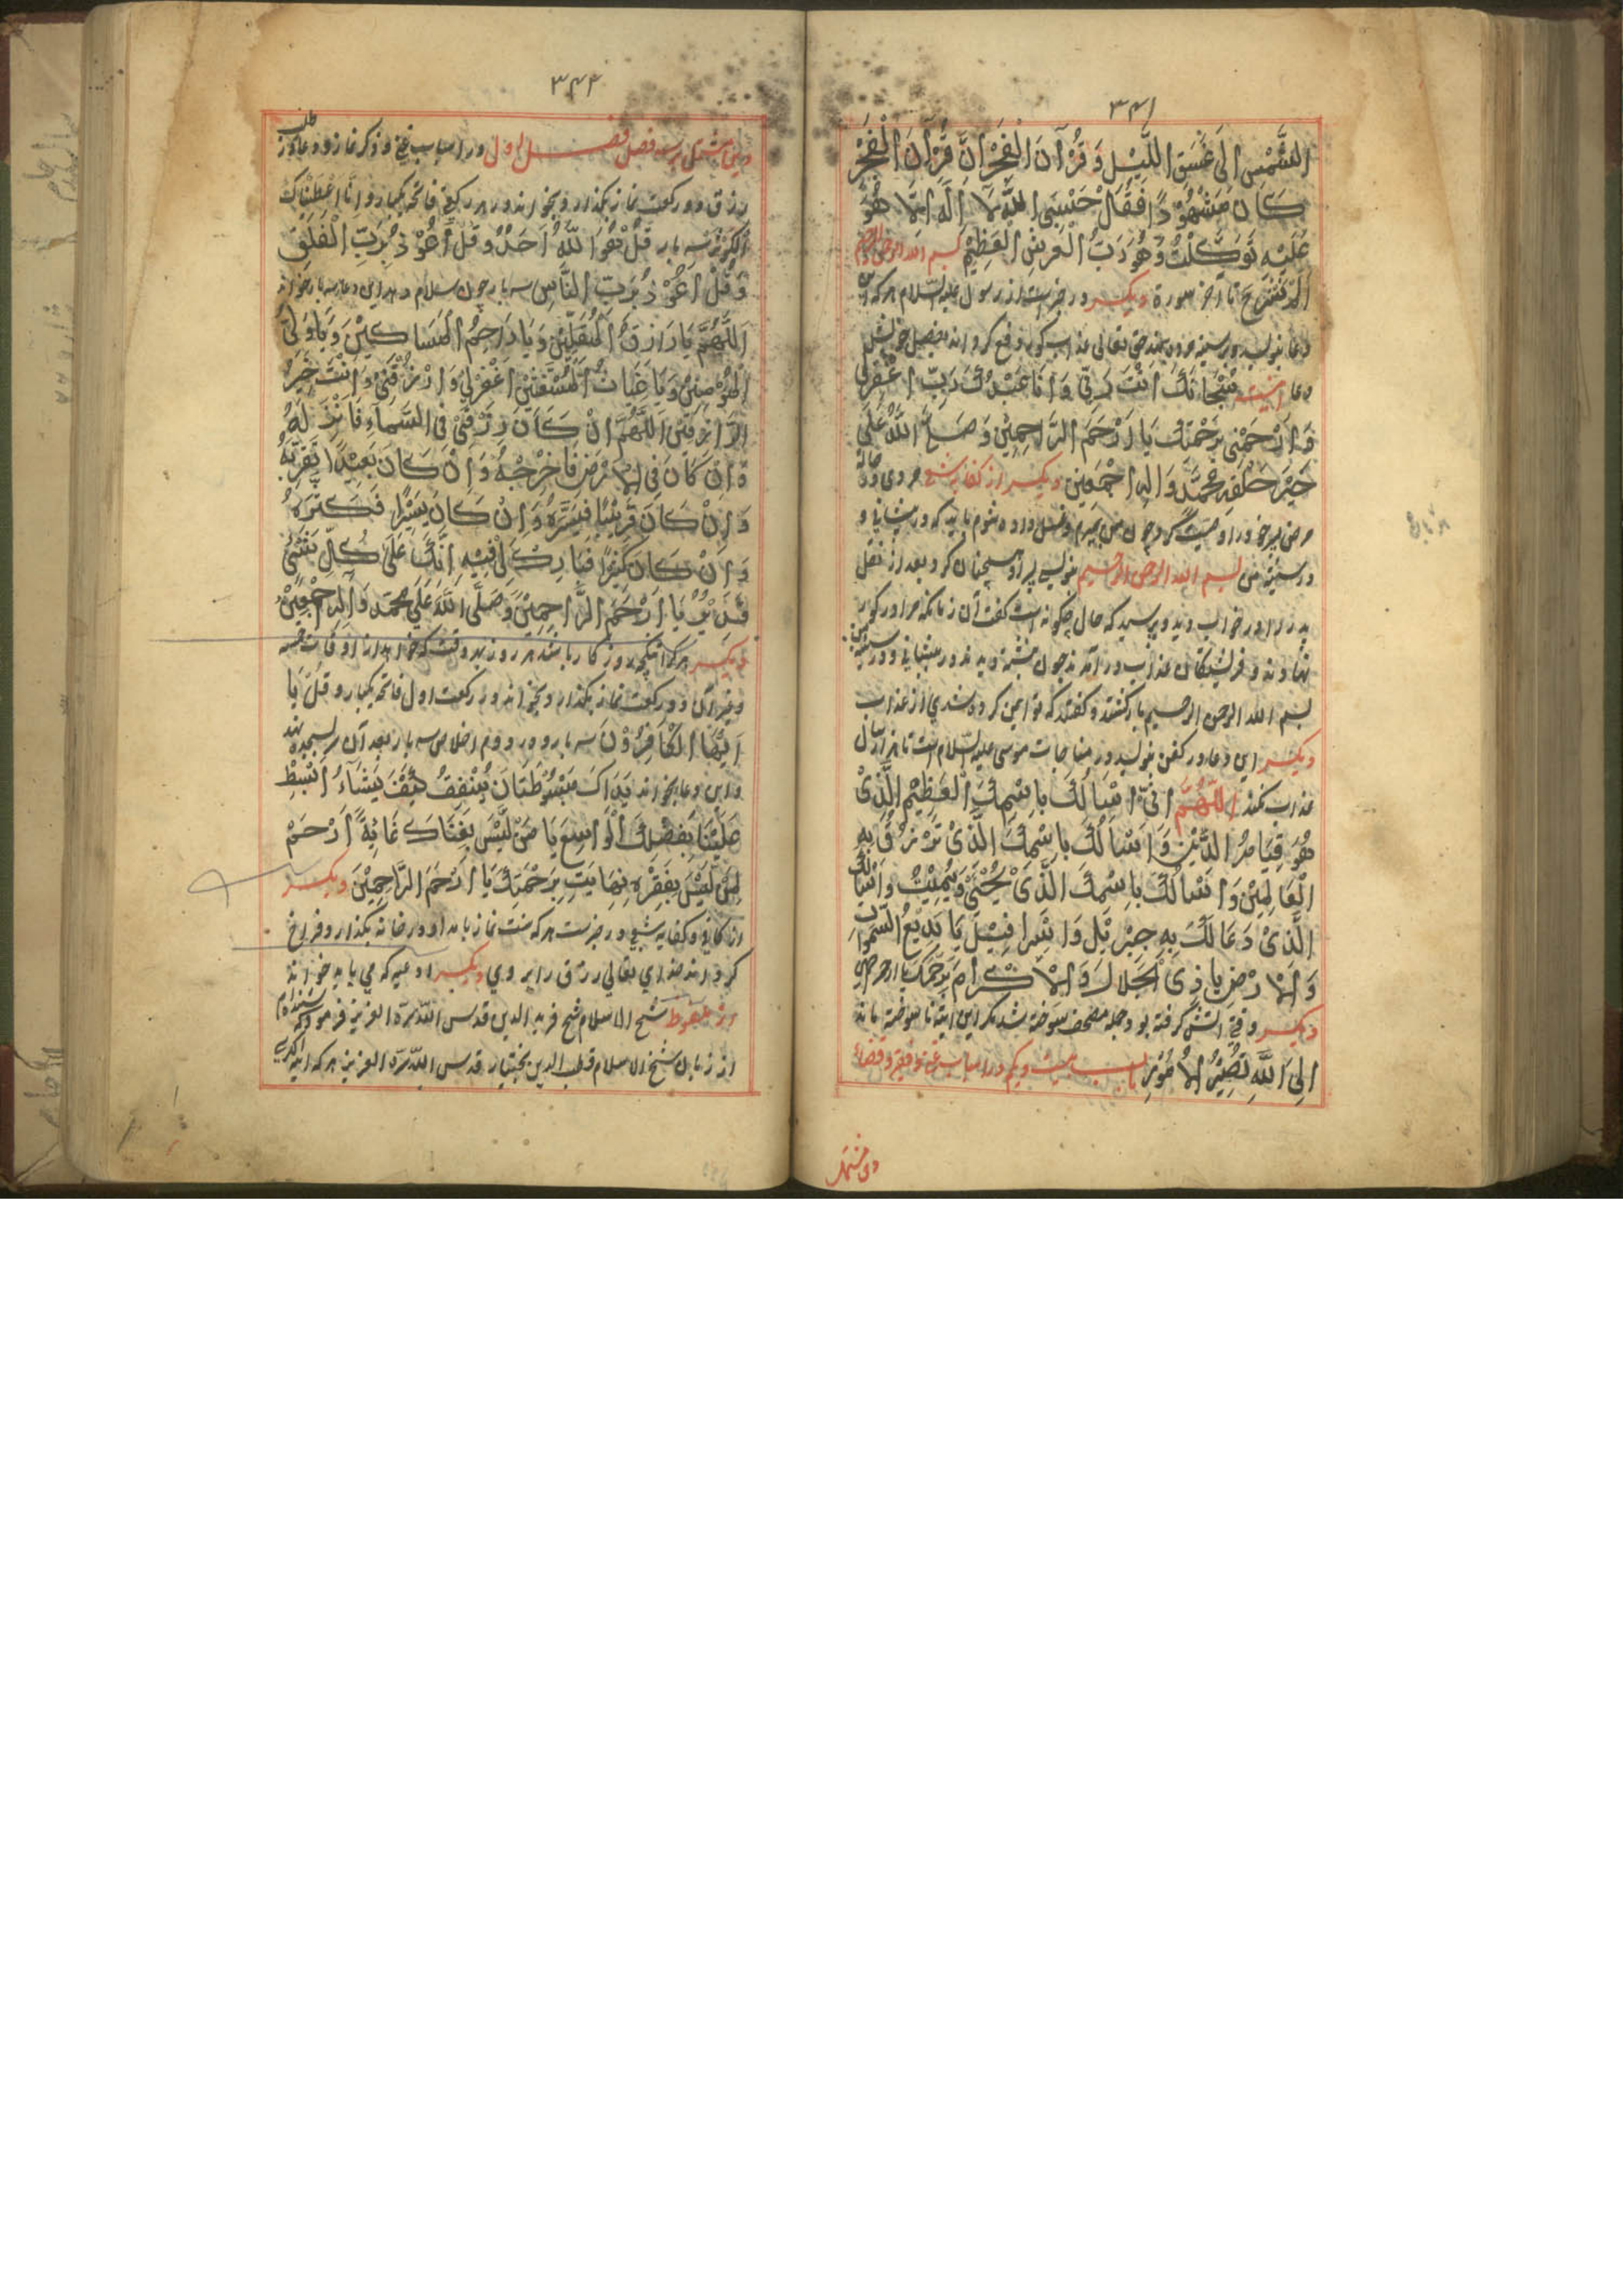 ۳۴۱
الشَّمْسِ الَى غَسَقِ اللَّيْلِ وَ قُرْآنَ الْفَجْرِ انَّ قُرْآنَ الْفَجْرِ
كَانَ مَشْهُوْدًا فَقُلْ حَسْبِيَ اللهُ لَا اِلٰهَ اِلَّا هُوَ
عَلَيْهِ تَوَكَّلْتُ وَهُوَ رَبُّ الْعَرْشِ الْعَظِيْمِ بسم الله الرحمن الرحيم
اَلَمْ نَشْرَحْ تا آخر سورة ديكر در خبر است از رسول عليه السلام هر كه اين
دعا بنويسد و بر سينه مرده بنهد حق تعالى عذاب كور رفع كرداند بفضل خويش
دعا اينست سُبْحَانَكَ اَنْتَ رَبِّى وَ اَنَا عَبْدُكَ رَبِّ اغْفِرْلِى
وَارْحَمْنِى بِرَحْمَتِكَ يَا اَرْحَمَ الرَّاحِمِيْنَ وَ صَلَّى اللهُ عَلَى
خَيْرِ خَلْقِهِ مُحَمَّدٍ وَ اٰلِهِ اَجْمَعِيْنَ ديكر از كفايه شعبى مروى
مر پسر خود را وصيت كرد چون من بميرم و غسل داده شوم بايد كه در پيشانى و
در سينه من بسم الله الرحمن الرحيم بنويس پسر او همچنان كرد بعد از نقل
پدر را در خواب ديد و پرسيد كه حال چكونه است كفت آن زمانكه مرا در كور
نهادند و فرشتكان عذاب در آمدند چون نبشته ديدند در پيشانى و در سينه من
بسم الله الرحمن الرحيم باز كشتند و كفتند كه تو ايمن كرده شدى از عذاب
ديكر اين دعا در كفن بنويسد در مناجات موسى عليه السلام است تا هزار سال
عذاب نكند اللّٰهُمَّ اِنِّى اَسْاَلُكَ بِاسْمِكَ الْعَظِيْمِ الَّذِىْ
هُوَ قِيَامُ الدِّيْنِ وَ اَسْاَلُكَ بِاسْمِكَ الَّذِىْ تَرْزُقُ بِهِ
الْعَالَمِيْنَ وَ اَسْاَلُكَ بِاسْمِكَ الَّذِىْ يُحْيِىْ وَ يُمِيْتُ وَ اَسْاَلُكَ
الَّذِىْ دَعَا لَكَ بِهِ جِبْرَئِيْلُ وَ اِسْرَافِيْلُ يَا بَدِيْعُ السَّمٰوَاتِ
وَ الْاَرْضِ يَا ذِى الْجَلَالِ وَ الْاِكْرَامِ بِرَحْمَتِكَ يا ارحم
ديكر وقتى آتش كرفته بود جمله مصحف سوخته شد مكر اين آيت نا سوخته ماند
اِلَى اللهِ تَصِيْرُ الْاُمُوْرُ باب بيست و يكم در اسباب غنى و فقر و قضاء
وين مشتمل
۳۴۲
وين مشتمل بر سه فصل فصل اول در اسباب غنى و ذكر نماز و دعا از طلب
رزق دو ركعت نماز بكذارد و بخواند در هر ركعتى فاتحه يكبار و اِنَّا اَعْطَيْنَاكَ
الْكَوْثَرَ سه بار قُلْ هُوَ اللهُ اَحَدٌ وَ قُلْ اَعُوْذُ بِرَبِّ الْفَلَقِ
وَ قُلْ اَعُوْذُ بِرَبِّ النَّاسِ سه بار چون سلام دهد اين دعا سه بار خواند
اَللّٰهُمَّ يَا رَازِقَ الْمُقِلِّيْنَ وَ يَا رَاحِمَ الْمَسَاكِيْنَ وَ يَا وَلِىَّ
الْمُؤْمِنِيْنَ وَ يَا غِيَاثَ الْمُسْتَغِيْثِيْنَ اغْفِرْلِى وَ ارْزُقْنِى وَ اَنْتَ خَيْرُ
الرَّازِقِيْنَ اَللّٰهُمَّ اِنْ كَانَ رِزْقِىْ فِى السَّمَاءِ فَاَنْزِلْهُ
وَ اِنْ كَانَ فِى الْاَرْضِ فَاَخْرِجْهُ وَ اِنْ كَانَ بَعِيْدًا فَقَرِّبْهُ
وَ اِنْ كَانَ قَرِيْبًا فَيَسِّرْهُ وَ اِنْ كَانَ يَسِيْرًا فَكَثِّرْهُ
وَ اِنْ كَانَ كَثِيْرًا فَبَارِكْ لِىْ فِيْهِ اِنَّكَ عَلَى كُلِّ شَىْءٍ
قَدِيْرٌ يَا اَرْحَمَ الرَّاحِمِيْنَ وَ صَلَّى اللهُ عَلَى مُحَمَّدٍ وَ اٰلِهِ اَجْمَعِيْنَ
ديكر هر كرا تنكى روزكار باشد هر روز بهر وقت كه خواهد از اوقات خمسه
و غير آن دو ركعت نماز بكذارد و بخواند در ركعت اول فاتحه يكبار و قُلْ يَا
اَيُّهَا الْكَافِرُوْنَ سه بار و در دوم اخلاص سه بار بعد آن سر بسجده نهد
و اين دعا بخواند يَدَاكَ مَبْسُوْطَتَانِ يُنْفِقُ كَيْفَ يَشَاءُ اُبْسُطْ
عَلَيْنَا بِفَضْلِكَ الْوَاسِعِ يَا مَنْ لَيْسَ بِغِنَاكَ غَايَةً اِرْحَمْ
لِمَنْ لَيْسَ بِفَقْرِهِ نِهَايَتِ بِرَحْمَتِكَ يَا اَرْحَمَ الرَّاحِمِيْنَ ديكر
از كافى و كفايه شعبى در خبر است هر كه سنت نماز بامداد در خانه بكذارد فراخ
كرداند خداى تعالى رزق را بر وى ديكر ادعيه كه مى بايد خواند
از ملفوظ شيخ الاسلام شيخ فريد الدين قدس الله سره العزيز فرمود كه شنيده ام
از زبان شيخ الاسلام قطب الدين بختيار قدس الله سره العزيز هر كه